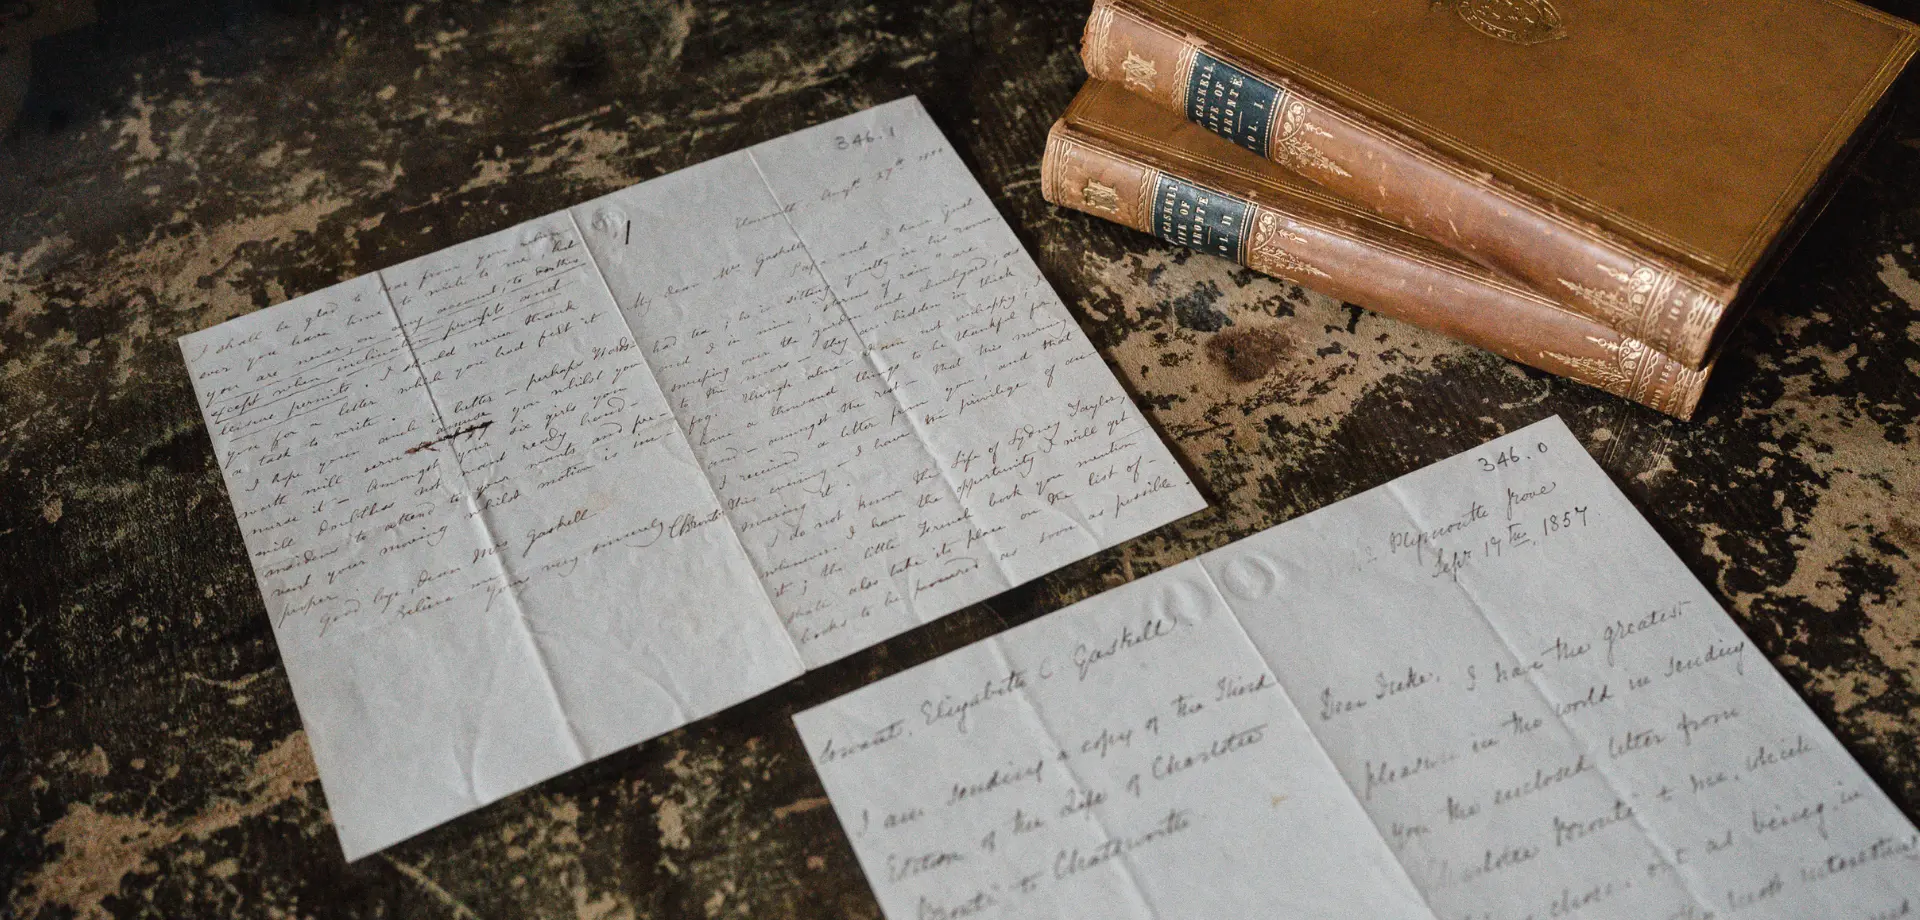 346.1
Augst 27th 1850
My dear Mrs Gaskell
Papa and I have just
had tea; he is sitting quietly in his room
and I in mine; storms of rain are
sweeping over the garden and churchyard; as
to the moors - they are hidden in thick
fog. Though alone I am not unhappy; I
have a thousand things to be thankful for,
and - amongst the rest - that this morning
I received a letter from you, and that
this evening - I have the privilege of an-
swering it.
I do not know the Life of Sydney Taylor;
whenever I have the opportunity I will get
it; the little French book you mention
shall also take its place on the list of
books to be procured as soon as possible.
I shall be glad to hear from you when-
ever you have time to write to me, but
you are never on any account, to do this
except when inclination prompts and
leisure permits. I should never thank
you for a letter which you had felt it
a task to write.
I hope your cough is better - perhaps Words-
worth will serve to amuse you whilst you
nurse it - Amongst your six girls you
will doubtless not
to attend to your wants and pre-
vent your moving whilst motion is im-
proper.
Good bye, dear Mrs Gaskell
Believe me
Yours very sincerely
CBrontë
346.0
Plymouth Grove
Sepr 17th, 1857.
Dear Duke, I have the greatest
pleasure in the world in sending
you the enclosed letter from
Charlotte Brontë to me, which
I chose out as being in
most interesting
Servant, Elizabeth C Gaskell.
I am sending a copy of the Third
Edition of the Life of Charlotte
Brontë to Chatsworth.
GASKELL
LIFE OF
BRONTË
VOL. I.
GASKELL
LIFE OF
BRONTË
VOL. II